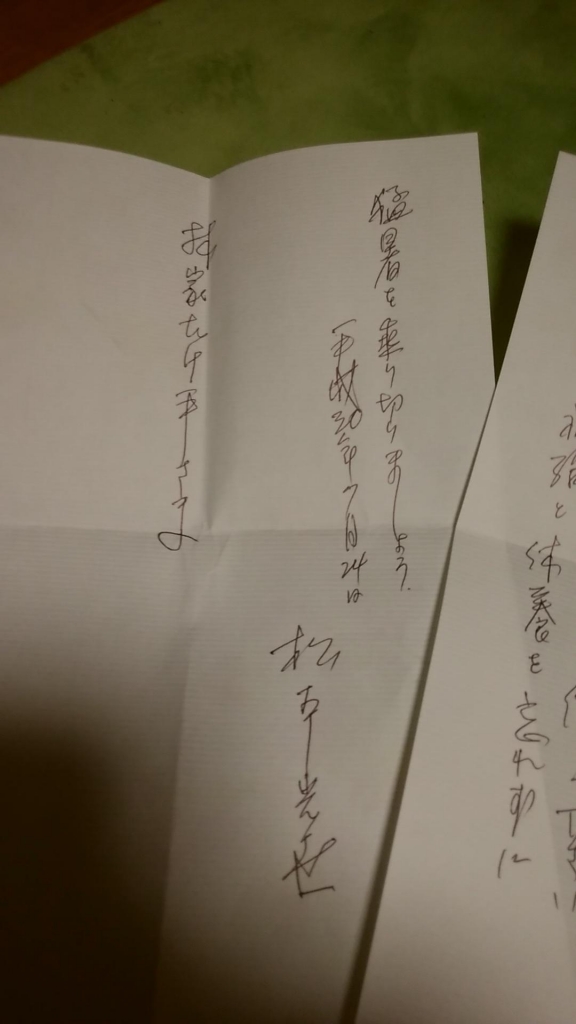 休養を忘れずに
猛暑を乗り切りましょう.
平成30年7月24日
松本光世
林家たけ平さま